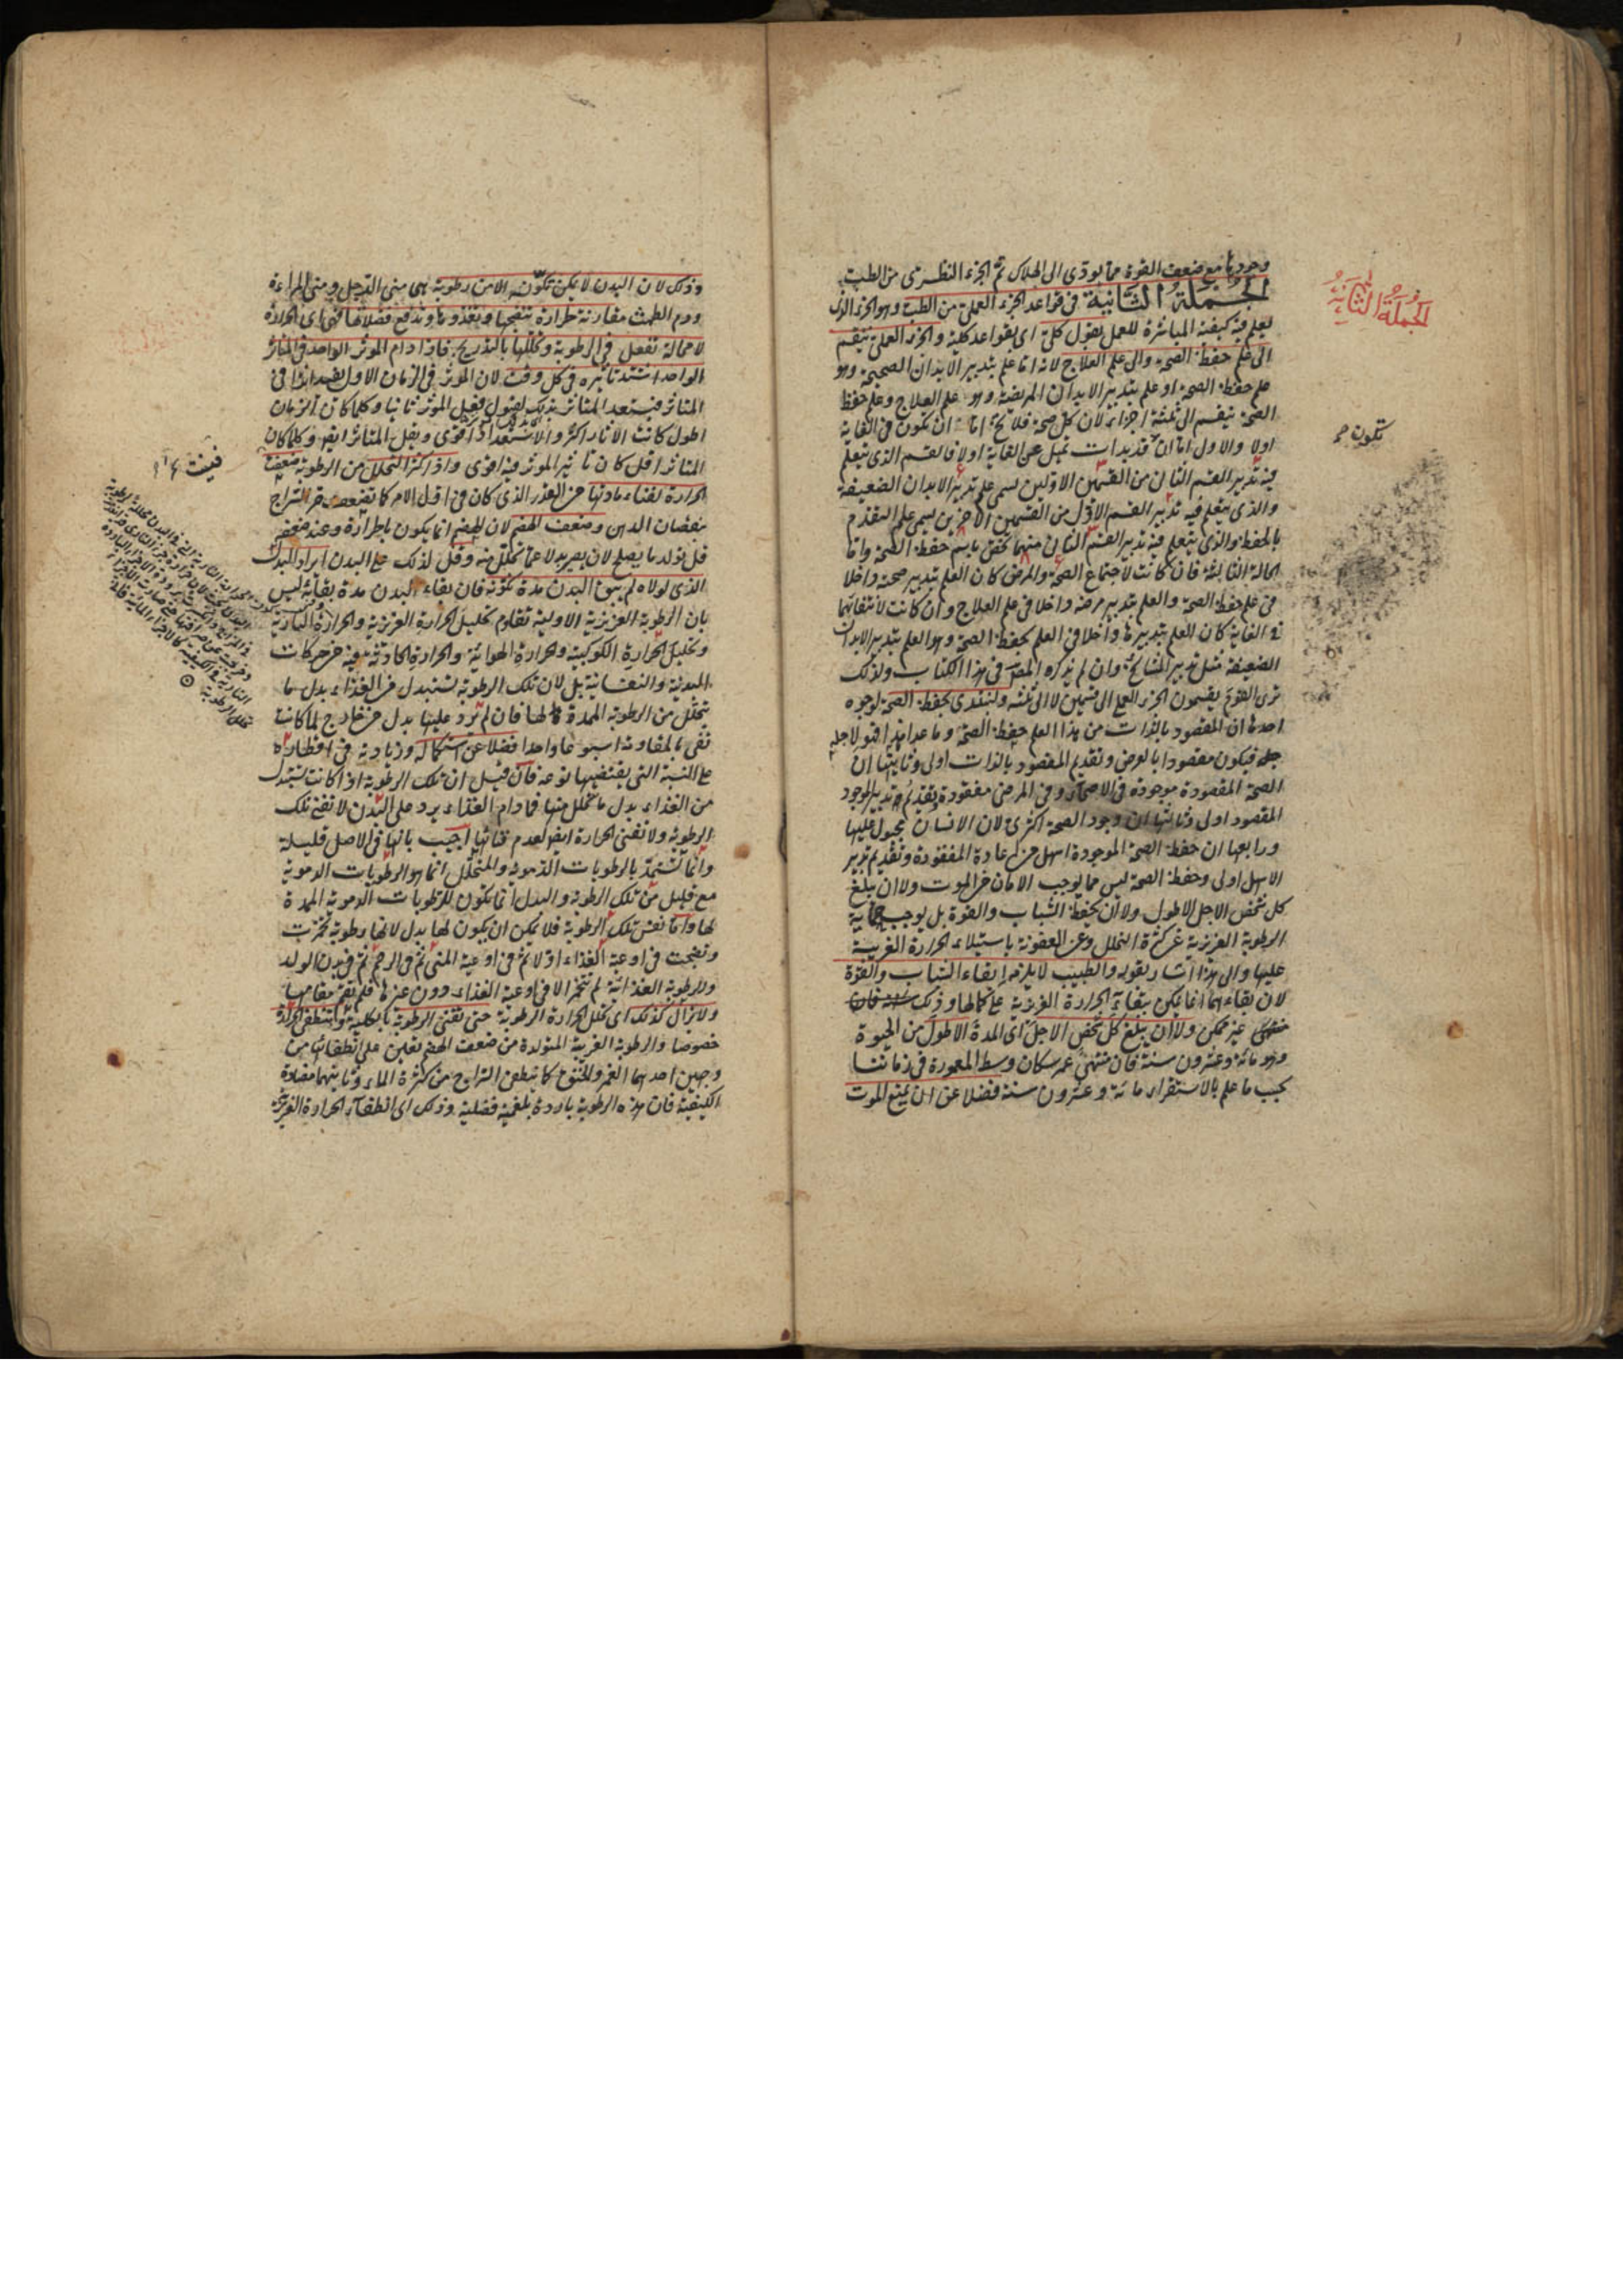 وجودها مع ضعف القوة مما يودى الى الهلاك تم الجزء النظرى من الطب
الجملة الثانية فى قواعد الجزء العملى من الطب وهو الجزء الذى
يعلم فيه كيفية المباشرة للعمل بقول كلى اى بقواعد كلية والجزء العملى ينقسم
الى علم حفظ الصحة والى علم العلاج لانه اما علم بتدبير الابدان الصحيحة وهو
علم حفظ الصحة او علم بتدبير الابدان المريضة وهو علم العلاج وعلم حفظ
الصحة ينقسم الى ثلثة اجزاء لان كل صحة فلا يخ اما ان تكون فى الغاية
اولا والاول اما ان قد بدات تميل عن الغاية اولا فالقسم الذى يتعلم
فيه تدبير القسم الثانى من القسمين الاولين يسمى علم تدبير الابدان الضعيفة
والذى يتعلم فيه تدبير القسم الاول من القسمين الاخرين يسمى علم التقدم
بالحفظ والذى يتعلم فيه تدبير القسم الثانى منهما يختص باسم حفظ الصحة واما
الحالة الثالثة فان كانت لاجتماع الصحة والمرض كان العلم بتدبير صحته داخلا
فى علم حفظ الصحة والعلم بتدبير مرضه داخلا فى علم العلاج وان كانت لانتفائهما
فى الغاية كان العلم بتدبيرها داخلا فى العلم بحفظ الصحة وهو العلم بتدبير الابدان
الضعيفة مثل تدبير المشايخ وان لم يذكره المص فى هذا الكتاب ولذلك
ترى القوم يقسمون الجزء العملى الى قسمين لا الى ثلثة ولنبتدى بحفظ الصحة لوجوه
احدها ان المقصود بالذات من هذا العلم حفظ الصحة وما عداه فهو لاجله
فيكون مقصودا بالعرض وتقديم المقصود بالذات اولى وثانيتها ان
الصحة المقصودة موجودة فى الاصحاء وفى المرض مفقودة وتقديم تدبير الموجود
المقصود اولى وثالثها ان وجود الصحة اكثرى لان الانسان مجبول عليها
ورابعها ان حفظ الصحة الموجودة اسهل من اعادة المفقودة وتقديم تدبير
الاسهل اولى وحفظ الصحة ليس مما يوجب الامان من الموت ولا ان يبلغ
كل شخص الاجل الاطول ولا ان يحفظ الشباب والقوة بل يوجب حماية
الرطوبة الغريزية عن كثرة التحلل وعن العفونة باستيلاء الحرارة الغريبة
عليها والى هذا اشار بقوله والطبيب لا يلزمه ابقاء الشباب والقوة
لان بقاءهما انما يمكن ببقاء الحرارة الغريزية على كمالها وذلك
غير ممكن ولا ان يبلغ كل شخص الاجل اى المدة الاطول من الحيوة
وهو مائة وعشرون سنة فان منتهى عمر سكان وسط المعمورة فى زماننا
بحسب ما علم بالاستقراء مائة وعشرون سنة فضلا عن ان يمنع الموت
الجملة الثانية
تكون
وذلك لان البدن لا يمكن تكونه الا من رطوبة هى منى الرجل ومنى المراءة
ودم الطمث مقارنة لحرارة تنضجها وتغذوها وتدفع فضلاتها فهى اى الحرارة
لا محالة تفعل فى الرطوبة وتحللها بالتدريج فاذا دام الموثر الواحد فى المتاثر
الواحد اشتد تاثيره فى كل وقت لان الموثر فى الزمان الاول يفيد اثرا فى
المتاثر فيستعد المتاثر بذلك لقبول فعل الموثر ثانيا وكلما كان الزمان
اطول كانت الاثار اكثر والاستعداد اقوى ويقل المتاثر ايضا وكلما كان
المتاثر اقل كان تاثير الموثر فيه اقوى واذا كثر التحلل من الرطوبة ضعفت
الحرارة لفناء مادتها عن القدر الذى كان فى اول الامر كما يضعف حر السراج
بنقصان الدهن وضعف الهضم لان الهضم انما يكون بالحرارة وعند ضعفه
قل تولد ما يصلح لان يصير بدلا عما تحلل منه وقل لذلك على البدن ايراد البدل
الذى لولاه لم يبق البدن مدة تكونه فان بقاء البدن مدة بقائه ليس
بان الرطوبة الغريزية الاولية تقاوم تحليل الحرارة الغريزية والحرارة النارية
وتحليل الحرارة الكوكبية والحرارة الهوائية والحرارة الحادثة فيه من حركات
البدنية والنفسانية بل لان تلك الرطوبة تستبدل من الغذاء بدل ما
يتحلل من الرطوبة الممدة لها فان لم ترد عليها بدل من خارج لما كانت
تفى بالمقاومة اسبوعا واحدا فضلا عن استكماله وزيادته فى اقطاره
على النسبة التى يقتضيها نوعه فان قيل ان تلك الرطوبة اذا كانت تستبدل
من الغذاء بدل ما تحلل منها فما دام الغذاء يرد على البدن لا تفنى تلك
الرطوبة ولا تفنى الحرارة ايضا لعدم فنائها اجيب بانها فى الاصل قليلة
وانما تستمد بالرطوبات الدموية والمتحلل انما هو الرطوبات الدموية
مع قليل من تلك الرطوبة والبدل انما تكون للرطوبات الدموية الممدة
لها واما نفس تلك الرطوبة فلا يمكن ان يكون لها بدل لانها رطوبة تخمرت
ونضجت فى اوعية الغذاء اولا ثم فى اوعية المنى ثم فى الرحم ثم فى بدن الولد
والرطوبة الغذائية لم تتخمر الا فى اوعية الغذاء دون غيرها فلم تقم مقامها
ولا يزال كذلك اى تحلل الحرارة الرطوبة حتى تفنى الرطوبة بالكلية وتنطفى الحرارة
خصوصا والرطوبة الغريبة المتولدة من ضعف الهضم تعين على انطفائها من
وجهين احدهما الغمر والخنق كما ينطفى السراج من كثرة الماء وثانيهما مضادة
الكيفية فان هذه الرطوبة باردة بلغمية فضلية وذلك اى انطفاء الحرارة الغريزية